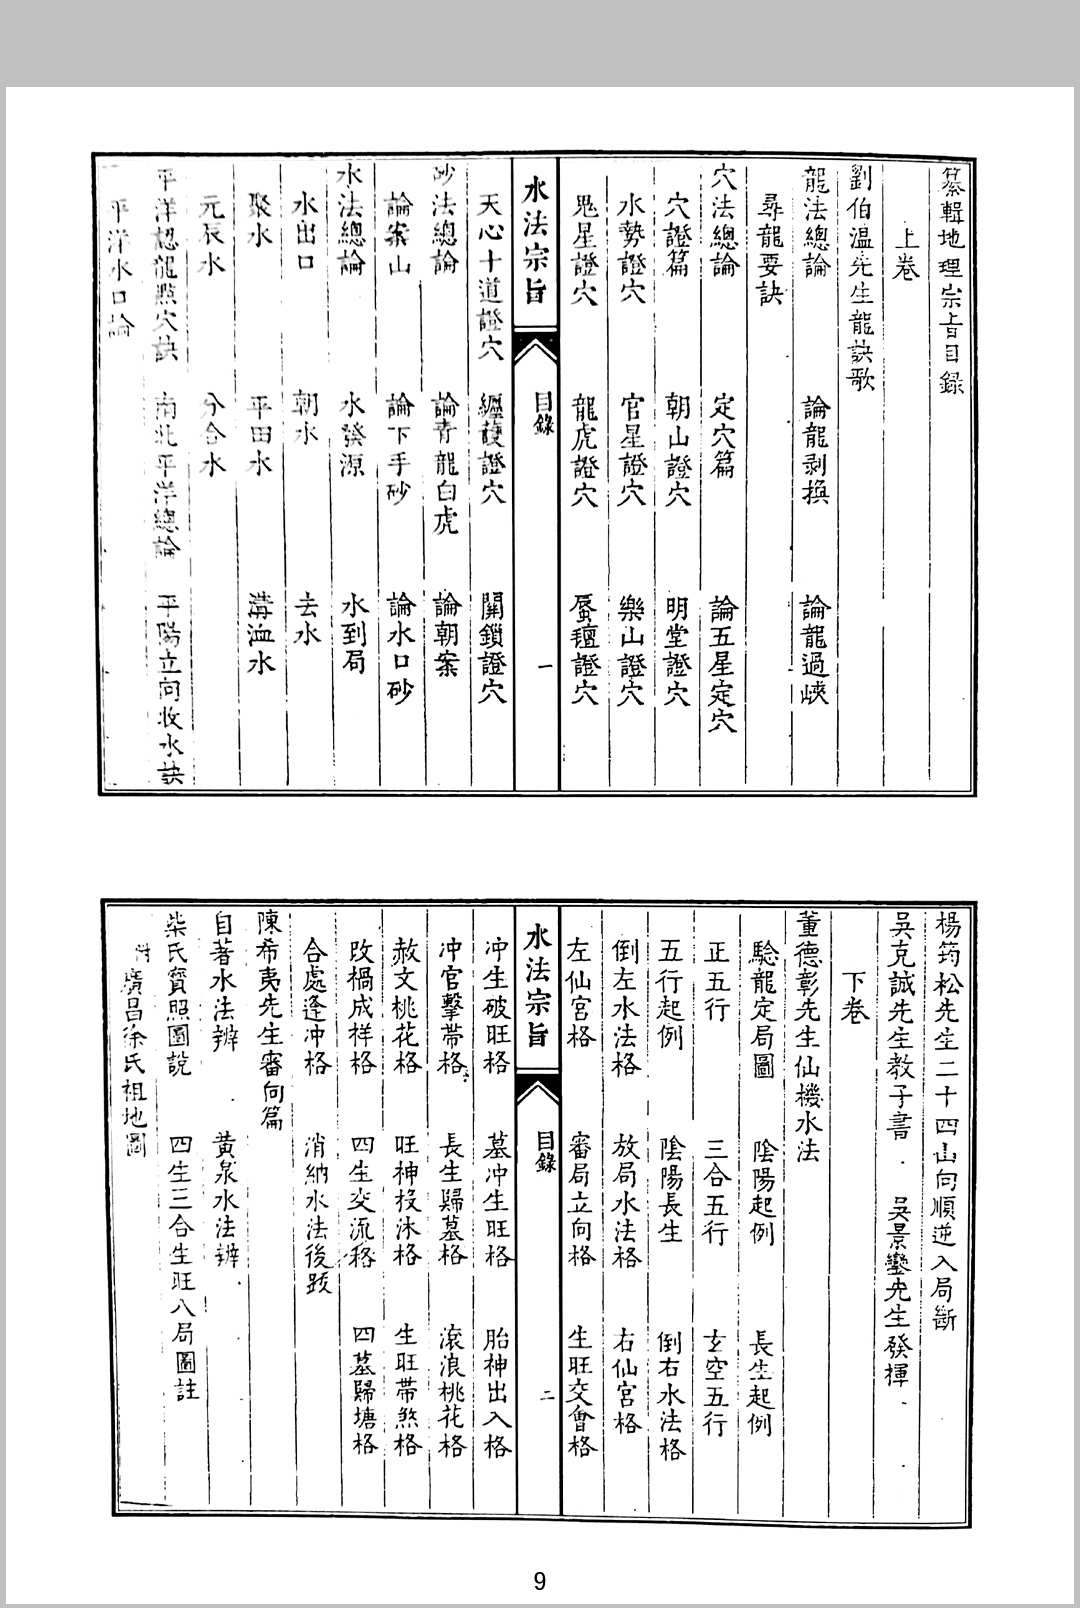 纂輯地理宗旨目錄
上卷
劉伯溫先生龍訣歌
龍法總論 論龍剥換 論龍過峽
尋龍要訣
穴法總論 定穴篇 論五星定穴
穴證篇 朝山證穴 明堂證穴
水勢證穴 官星證穴 樂山證穴
鬼星證穴 龍虎證穴 唇氊證穴
水法宗旨 目錄 一
天心十道證穴 纏護證穴 關鎖證穴
砂法總論 論青龍白虎 論朝案
論案山 論下手砂 論水口砂
水法總論 水發源 水到局
水出口 朝水 去水
聚水 平田水 溝洫水
元辰水 分合水
平洋認龍點穴訣 南北平洋總論 平陽立向收水訣
平洋水口論
楊筠松先生二十四山向順逆入局斷
吳克誠先生教子書 吳景鸞先生發揮
下卷
董德彰先生仙機水法
驗龍定局圖 陰陽起例 長生起例
正五行 三合五行 玄空五行
五行起例 陰陽長生 倒右水法格
倒左水法格 放局水法格 右仙宮格
左仙宮格 審局立向格 生旺交會格
水法宗旨 目錄 二
冲生破旺格 墓冲生旺格 胎神出入格
冲官擊帶格 長生歸墓格 滾浪桃花格
赦文桃花格 旺神投沐格 生旺帶煞格
改禍成祥格 四生交流格 四墓歸塘格
合處逢冲格 消納水法後跋
陳希夷先生審向篇
自著水法辨 黄泉水法辨
柴氏寶照圖說 四生三合生旺八局圖註
附廣昌徐氏祖地圖
9